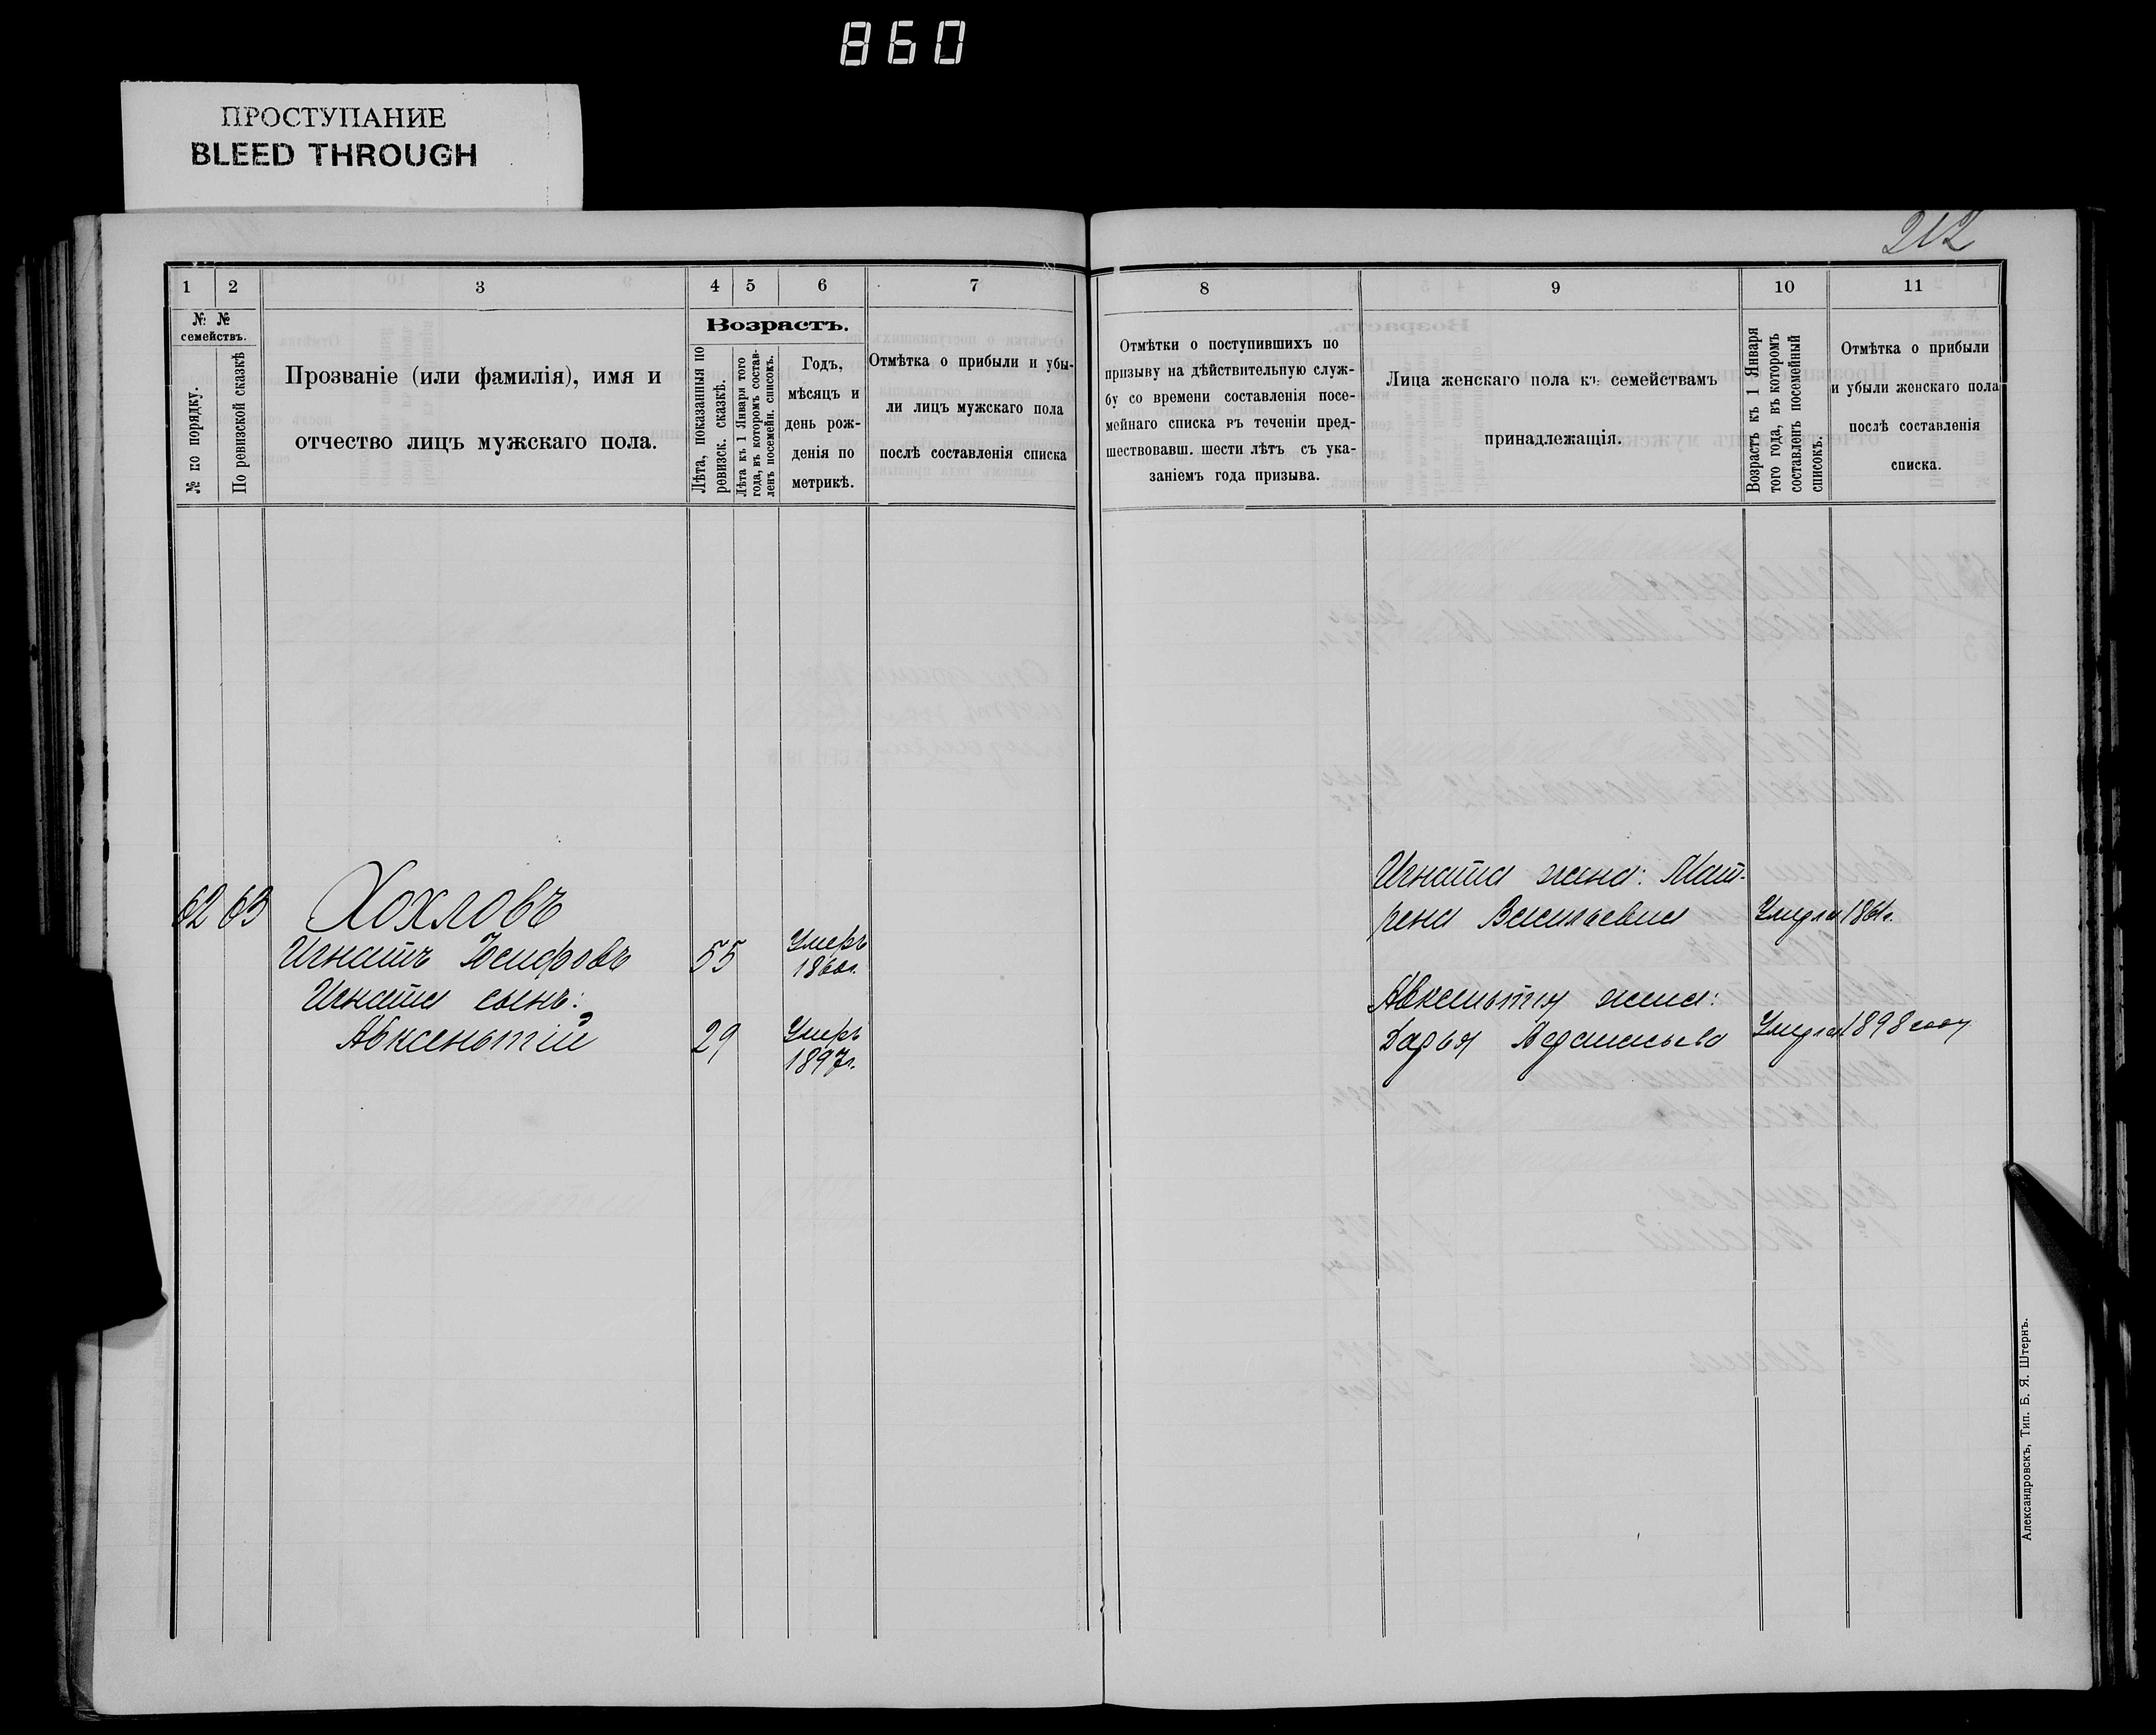 860
ПРОСТУПАНИЕ
BLEED THROUGH
212
1 2 3 4 5 6 7
№ №
семействъ.
№ по порядку.
По ревизской сказкѣ
Прозваніе (или фамилія), имя и
отчество лицъ мужскаго пола.
Возрастъ.
Лѣта, показанныя по
ревизск. сказкѣ.
Лѣта къ 1 Января того
года, въ которомъ состав-
ленъ посемейн. списокъ.
Годъ,
мѣсяцъ и
день рож-
денія по
метрикѣ.
Отмѣтка о прибыли и убы-
ли лицъ мужскаго пола
послѣ составленія списка
62 63 Хохловъ
Игнатъ Іосифовъ 55 Умеръ
1860г.
Игната сынъ:
Авксентій 29 Умеръ
1897г.
8 9 10 11
Отмѣтки о поступившихъ по
призыву на дѣйствительную служ-
бу со времени составленія посе-
мейнаго списка въ теченіи пред-
шествовавш. шести лѣтъ съ ука-
заніемъ года призыва.
Лица женскаго пола къ семействамъ
принадлежащія.
Возрастъ къ 1 Января
того года, въ которомъ
составленъ посемейный
списокъ.
Отмѣтка о прибыли
и убыли женскаго пола
послѣ составленія
списка.
Игната жена: Мат-
рена Васильевна Умерла 1861г.
Авксентія жена:
Дарья Умерла 1898 году
Александровскъ, Тип. Б. Я. Штернъ.